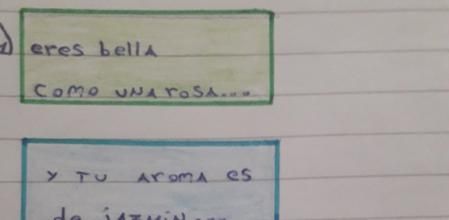 eres bella
como una rosa...
y tu aroma es
de jazmin...